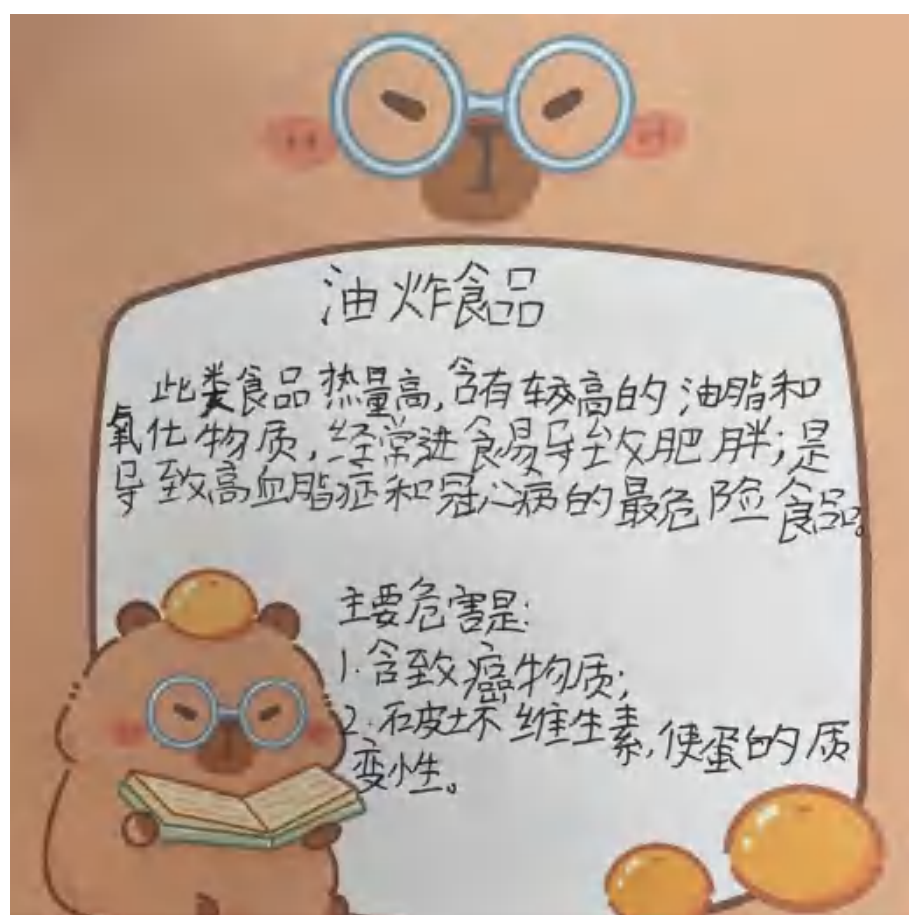 油炸食品
此类食品热量高,含有较高的油脂和
氧化物质,经常进食易导致肥胖;是
导致高血脂症和冠心病的最危险食品。
主要危害是:
1.含致癌物质;
2.破坏维生素,使蛋的质
变性。